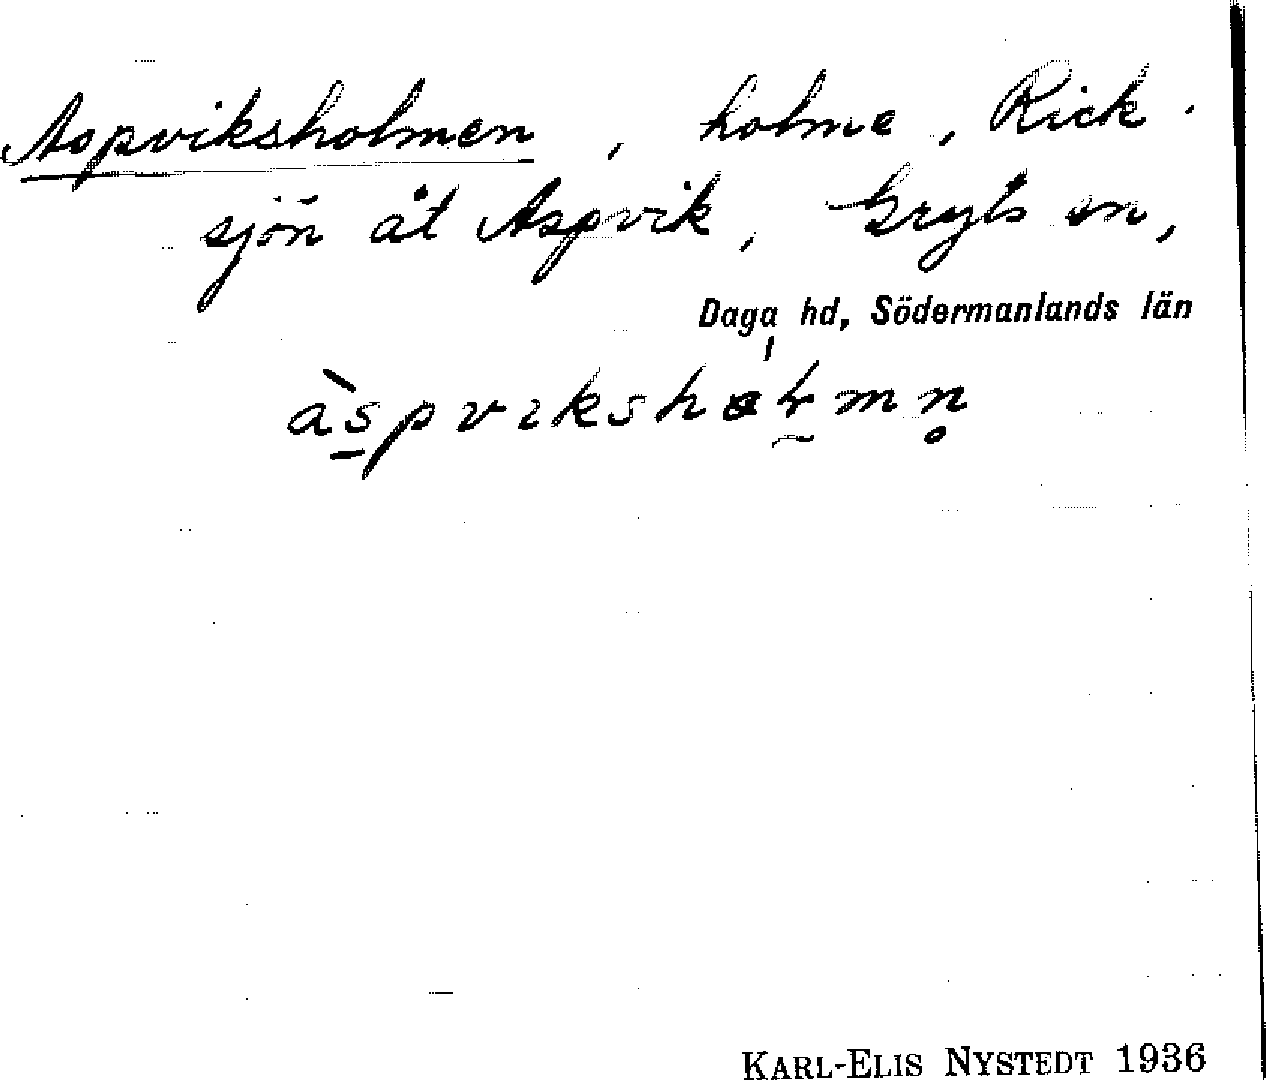 Aspviksholmen, holme, Rick-
sjön åt Aspvik, Gryts sn,
Daga hd, Södermanlands län
àspviksholmn̥
KARL-ELIS NYSTEDT 1936